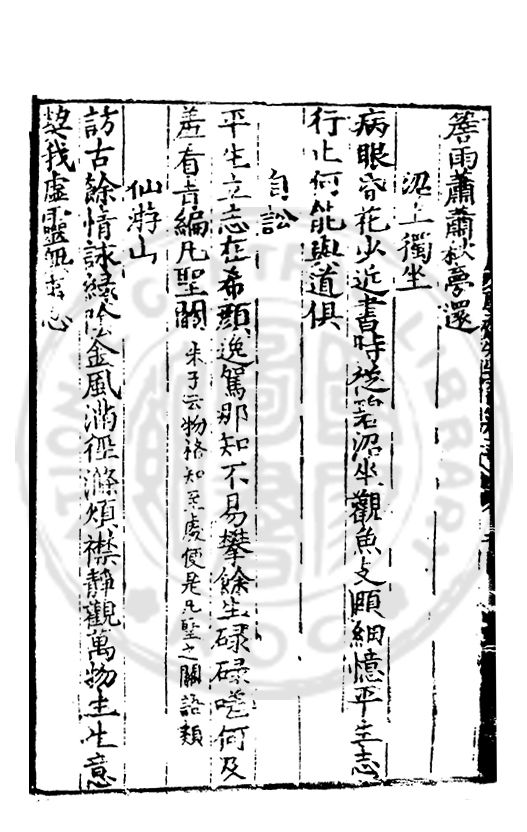 簷雨蕭蕭秋夢還
梁上獨坐
病眼昏花少近書時從碧沼坐觀魚支頤細憶平生志
行止何能與道俱
自訟
平生立志在希顏逸駕那知不易攀餘生碌碌嗟何及
羞看青編凡聖關 朱子云物格知至處便是凡聖之關語類
仙游山
訪古餘情詠綠陰金風滿徑滌煩襟靜觀萬物生生意
契我虛靈無妄心